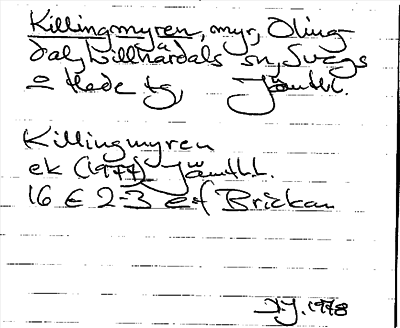 Killingmyren, myr, Öling-
dal, Lillhärdals sn, Svegs
o Hede tg, Jämtl.l.
Killingmyren
ek (1977) Jämtl.l.
16 E 2-3 e-f Brickan
D.J. 1978